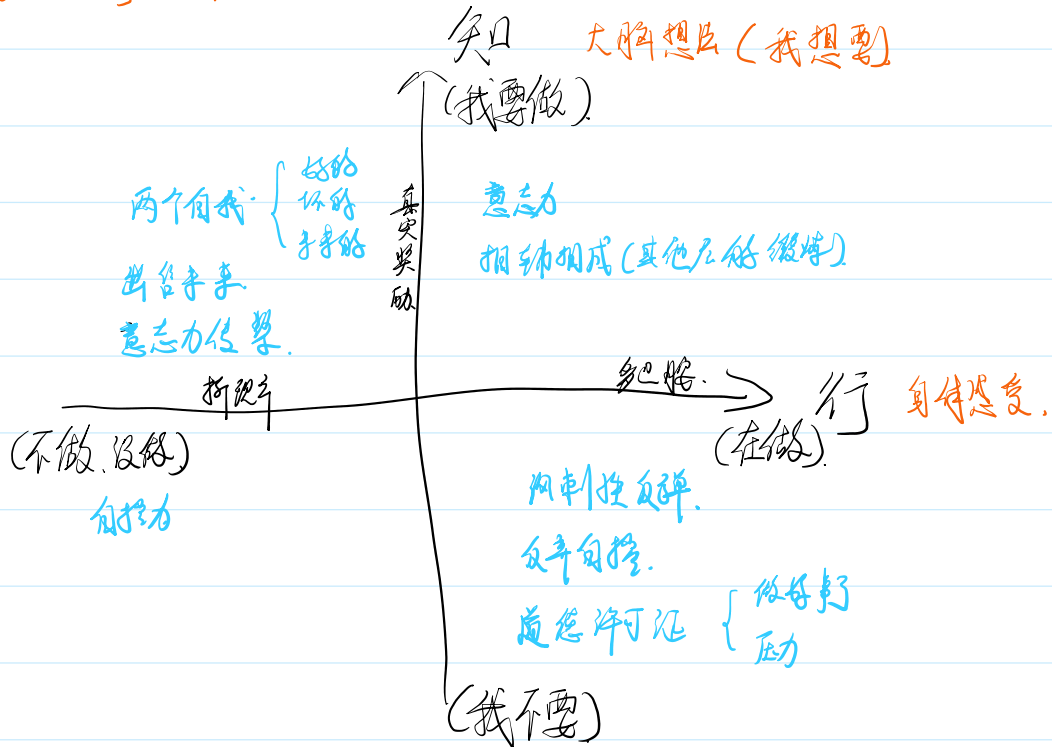 知 大脑想法(我想要)
(我要做).
真实奖励
两个自我. { 好的
坏的
未来的
出售未来.
意志力传染.
意志力
相辅相成(其他人的锻炼).
折现率
多巴胺.
行 身体感受.
(不做、没做)
(在做).
自控力
讽刺性反弹.
放弃自控.
道德许可证 { 做好事了
压力
(我不要)